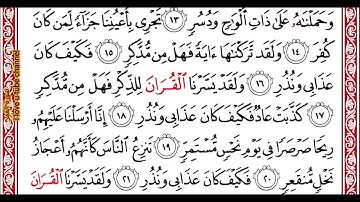 وَحَمَلْنَٰهُ عَلَىٰ ذَاتِ أَلْوَٰحٍ وَدُسُرٍ ١٣ تَجْرِى بِأَعْيُنِنَا جَزَآءً لِّمَن كَانَ
كُفِرَ ١٤ وَلَقَد تَّرَكْنَٰهَآ ءَايَةً فَهَلْ مِن مُّدَّكِرٍ ١٥ فَكَيْفَ كَانَ
عَذَابِى وَنُذُرِ ١٦ وَلَقَدْ يَسَّرْنَا الْقُرْءَانَ لِلذِّكْرِ فَهَلْ مِن مُّدَّكِرٍ
١٧ كَذَّبَتْ عَادٌ فَكَيْفَ كَانَ عَذَابِى وَنُذُرِ ١٨ إِنَّآ أَرْسَلْنَا عَلَيْهِمْ
رِيحًا صَرْصَرًا فِى يَوْمِ نَحْسٍ مُّسْتَمِرٍّ ١٩ تَنزِعُ النَّاسَ كَأَنَّهُمْ أَعْجَازُ
نَخْلٍ مُّنقَعِرٍ ٢٠ فَكَيْفَ كَانَ عَذَابِى وَنُذُرِ ٢١ وَلَقَدْ يَسَّرْنَا الْقُرْءَانَ